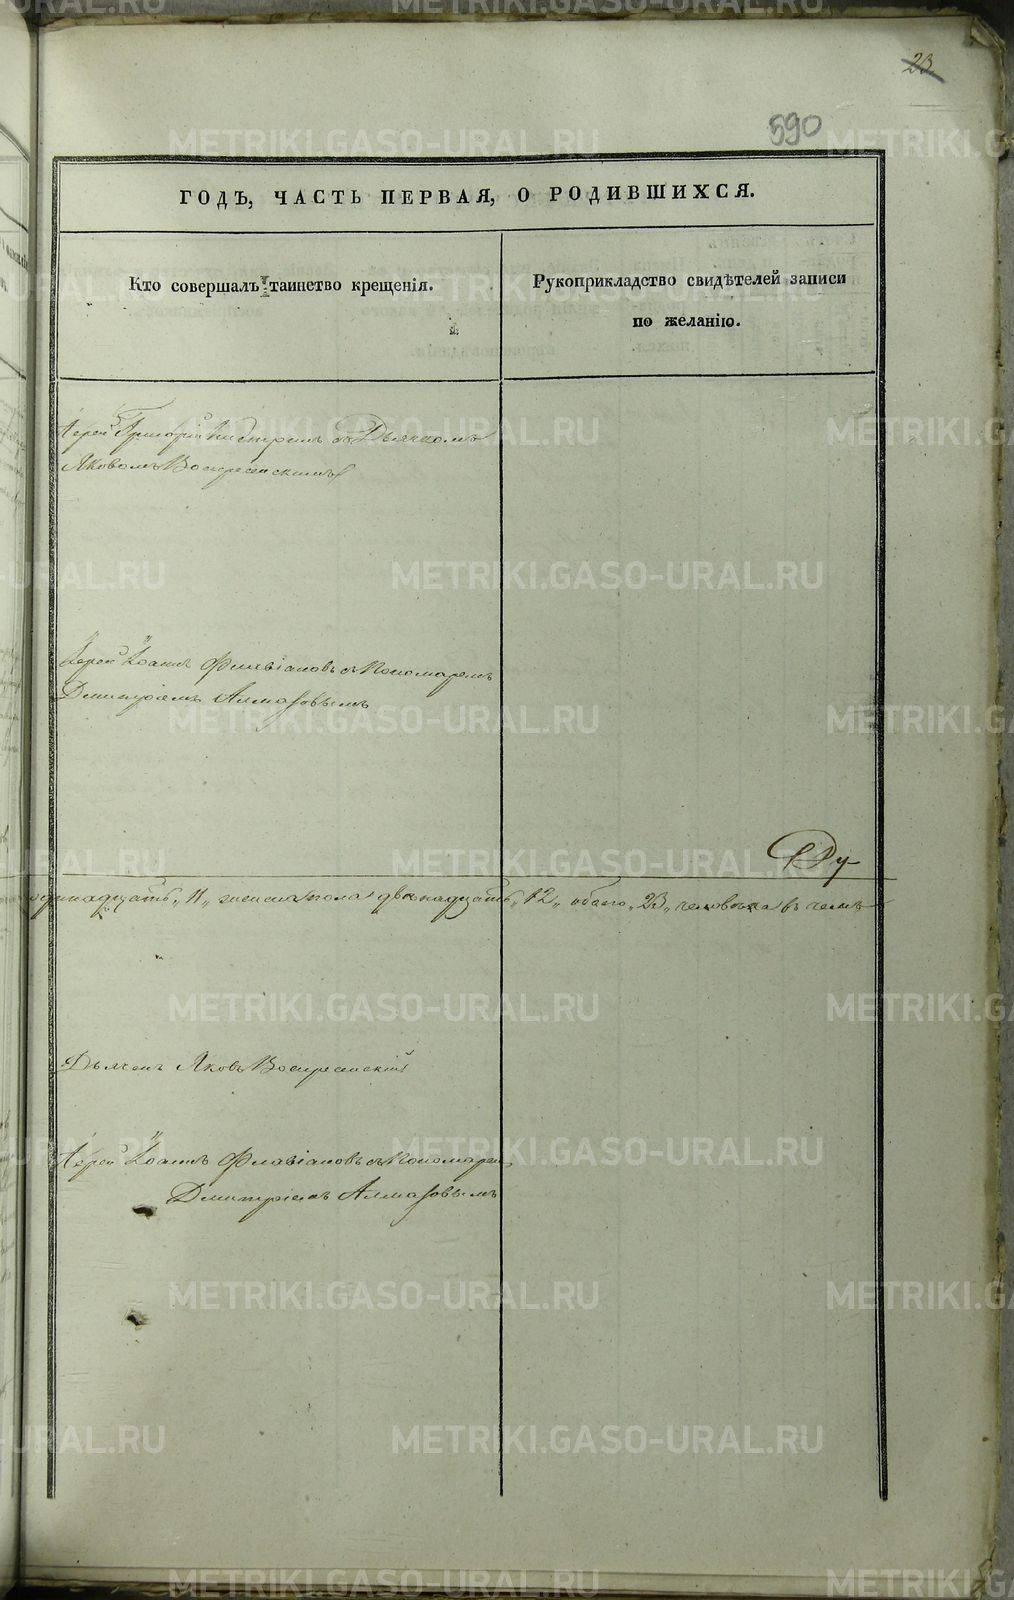 23
590
ГОДЪ, ЧАСТЬ ПЕРВАЯ, О РОДИВШИХСЯ.
Кто совершалъ таинство крещенія.
Рукоприкладство свидѣтелей записи
по желанію.
Іерей Григорій съ Дьячкомъ
Яковомъ Воскресенскимъ
Іерей Іоаннъ Флавіановъ съ Пономаремъ
Дмитріемъ Алмазовымъ
Ду
одинадцать „11„ женска пола двенадцать „12„ обоего „23„ человека въ чемъ
Дьячекъ Яковъ Воскресенскій
Іерей Іоаннъ Флавіановъ съ Пономарем
Дмитріемъ Алмазовымъ
METRIKI.GASO-URAL.RU